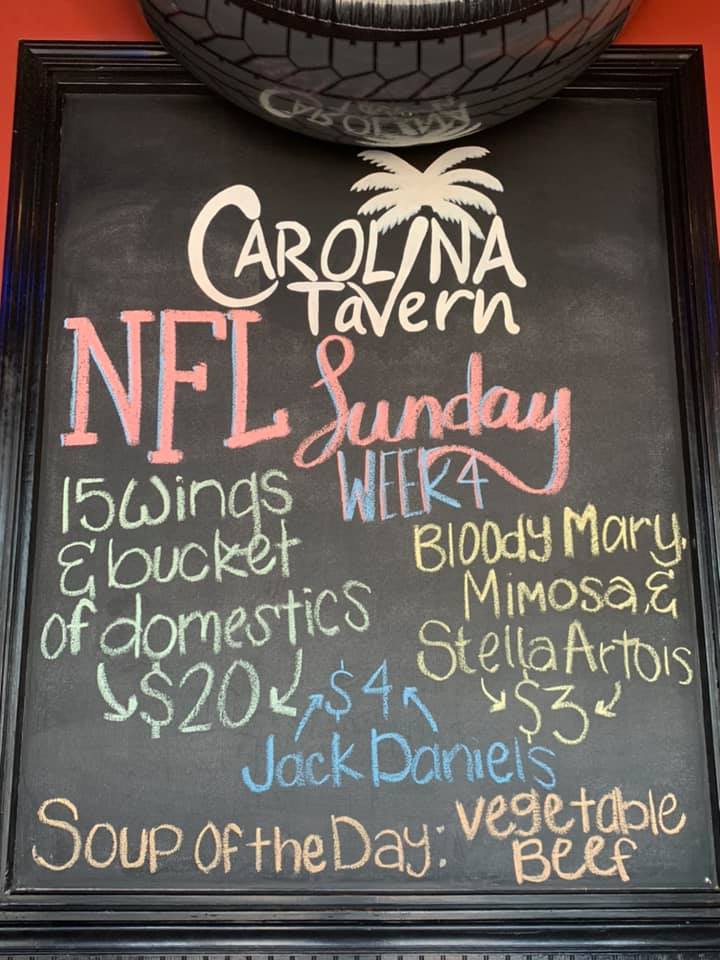 CAROLINA
Tavern
NFL Sunday
WEEK 4
15 Wings
& bucket
of domestics
$20
Bloody Mary,
Mimosa &
Stella Artois
$3
$4
Jack Daniels
Soup Of the Day: vegetable
Beef